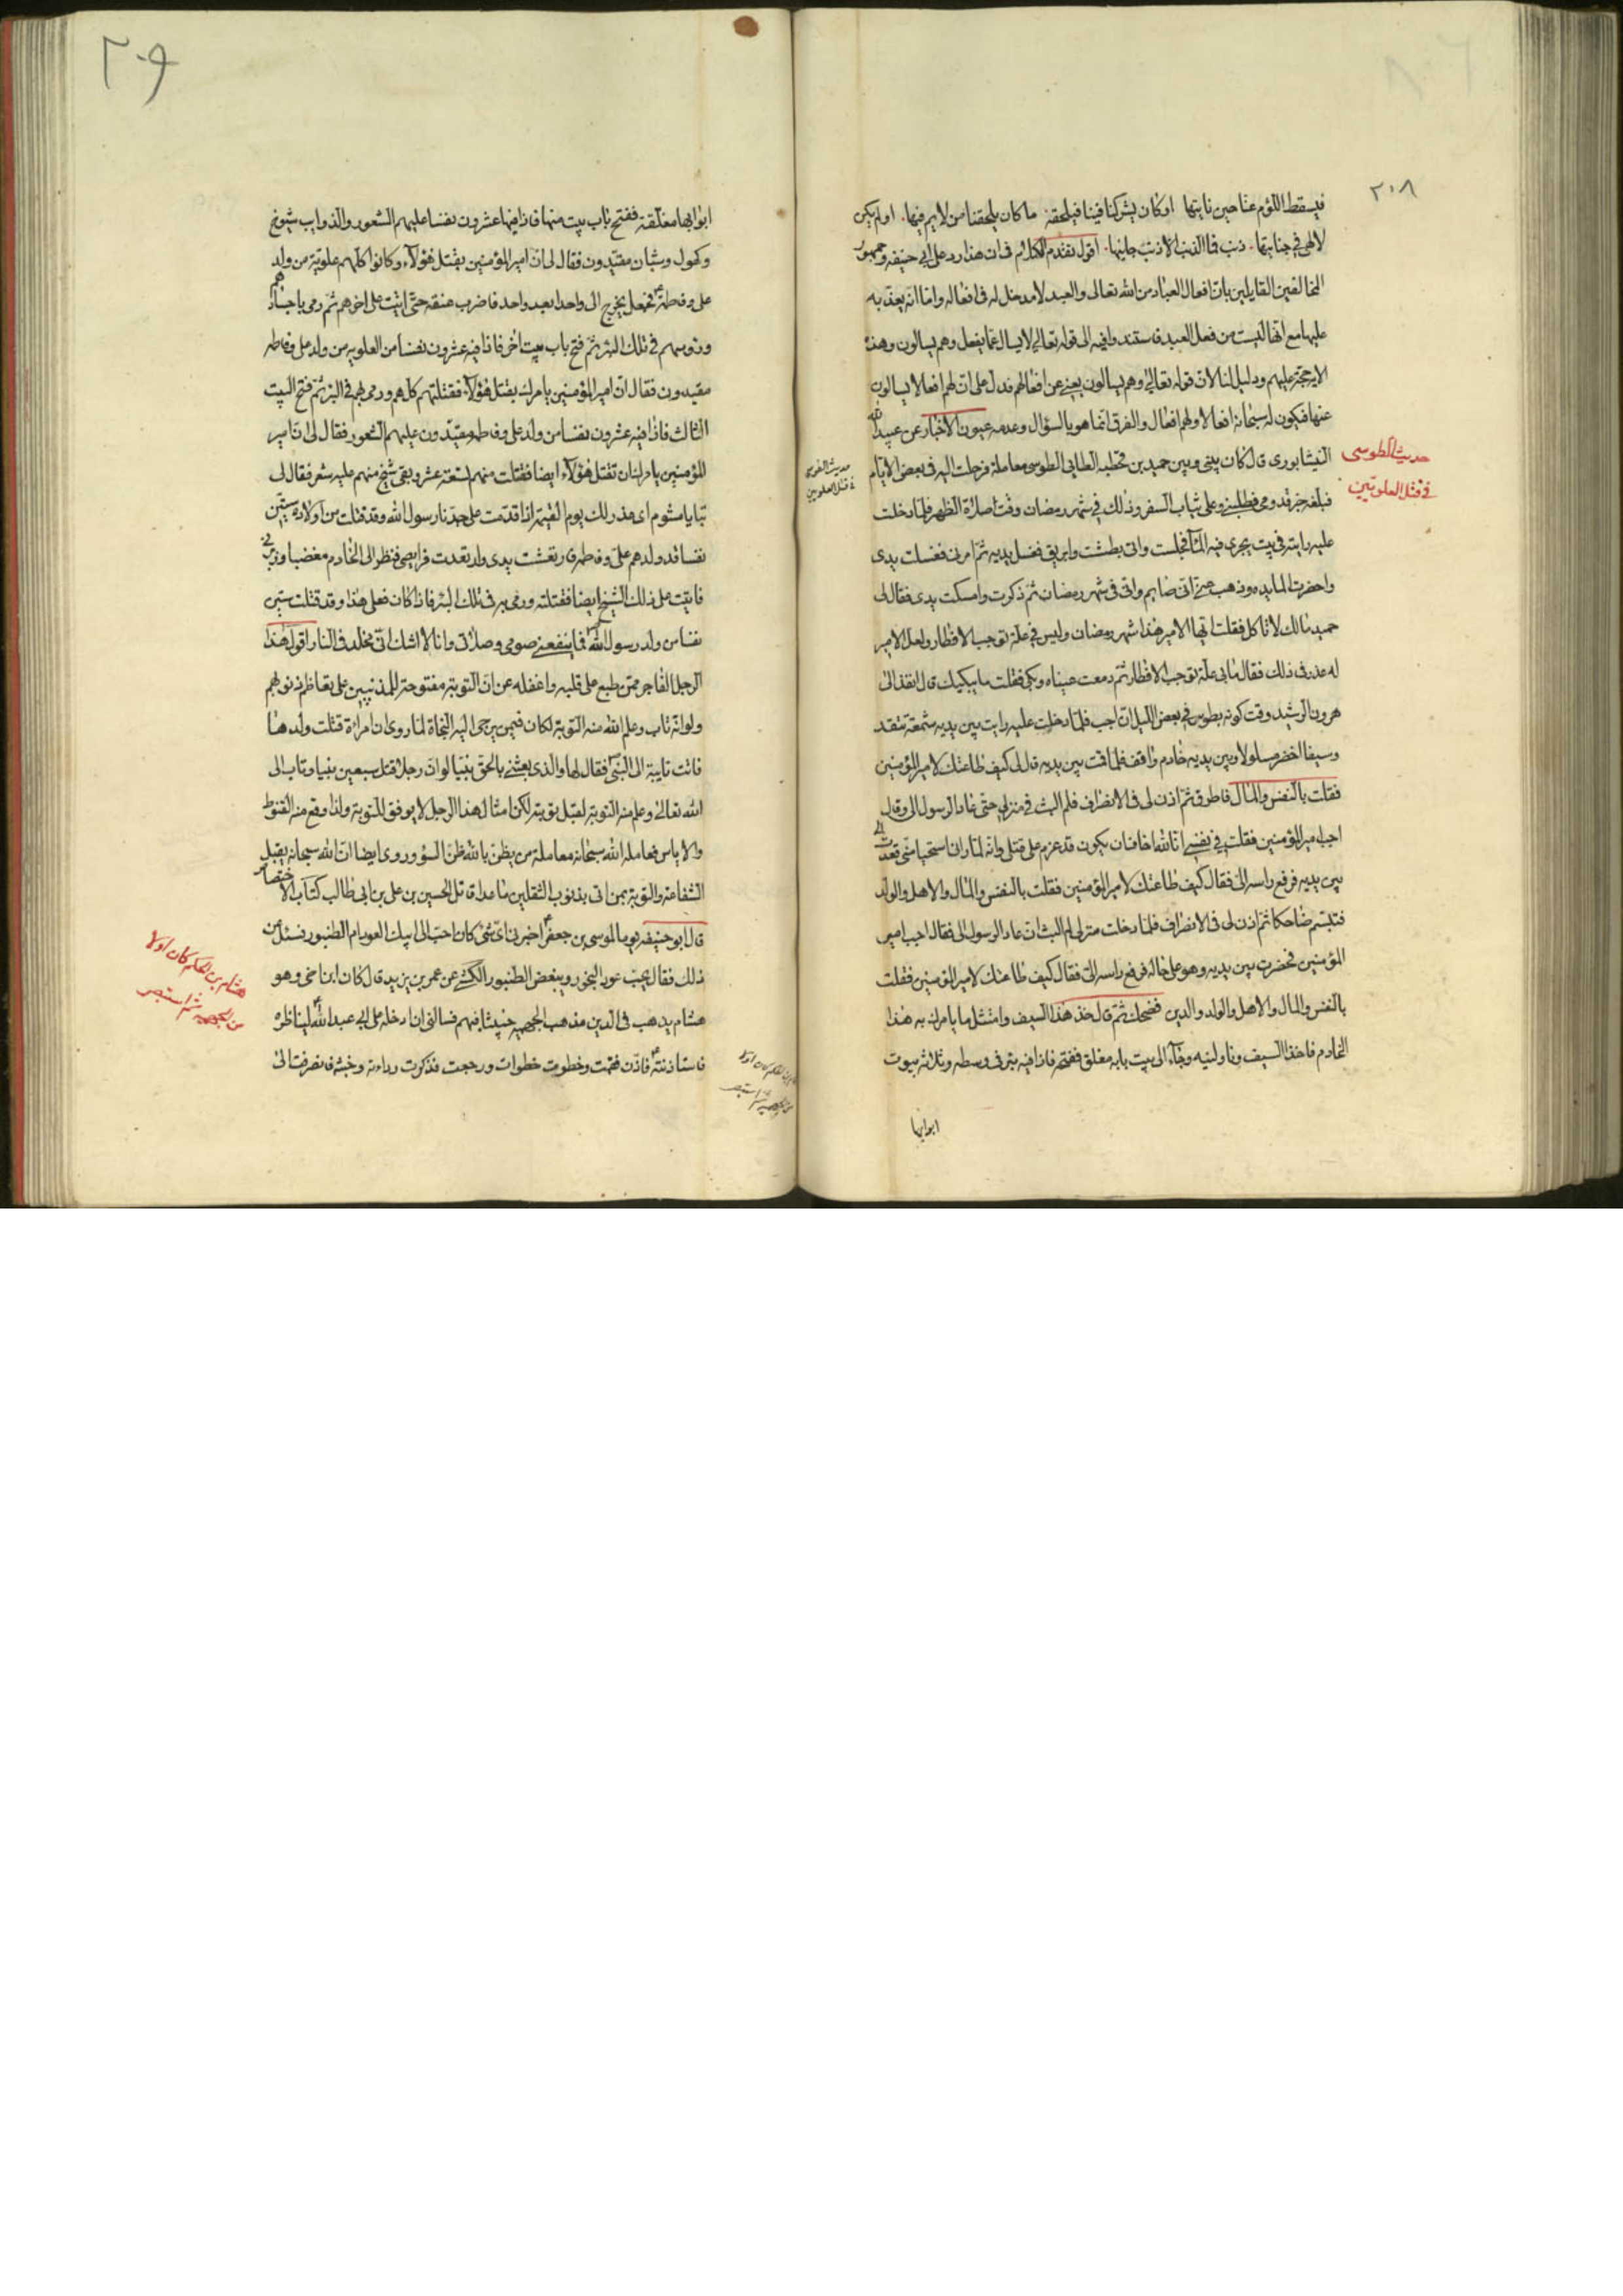 ٢٠٨
فيسقط اللؤم عنا حين ناتيها اوكان يشركنا فينا فيلحقه ما كان يلحقنا من لايم فيها اولم يكن
لالهي في جنايتها ذنب فما الذنب الا ذنب جانيها اقول تقدم الكلام في ان هذا رد على ابي حنيفه وجمهور
المخالفين القايلين بان افعال العباد من الله تعالى والعبد لا مدخل له في افعاله واما انه يعذبه
عليها مع انها ليست من فعل العبد فاستندوا فيه الى قوله تعالى لا يسال عما يفعل وهم يسالون وهذه
الاية حجة عليهم ودليل لنا لان قوله تعالى وهم يسالون يعني عن افعالهم فدل على ان لهم افعالا يسالون
عنها فيكون له سبحانه افعالا ولهم افعال والفرق انما هو بالسؤال وعدمه عيون الاخبار عن عبيد الله
النيشابوري قال كان بيني وبين حميد بن قحطبه الطايي الطوسي معاملة فرحلت اليه في بعض الايام
حديث الطوسي
في قتل العلويين
فبلغه خبر قدومي فطلبني وعلي ثياب السفر وذلك في شهر رمضان وقت صلاة الظهر فلما دخلت
عليه رايته في بيت يجري فيه الماء فجلست واتى بطشت وابريق فغسل يديه ثم امرني فغسلت يدي
واحضرت المايده وذهب عني اني صايم واني في شهر رمضان ثم ذكرت وامسكت يدي فقال لي
حميد مالك لا تاكل فقلت ايها الامير هذا شهر رمضان وليس في علة توجب الافطار ولعل الامير
له عذر في ذلك فقال ما بي علة توجب الافطار ثم دمعت عيناه وبكى فقلت ما يبكيك قال انفذ الي
هرون الرشيد وقت كونه بطوس في بعض الليل ان اجب فلما دخلت عليه رايت بين يديه شمعة تتقد
وسيفا اخضر مسلولا وبين يديه خادم واقف فلما قمت بين يديه قال لي كيف طاعتك لامير المؤمنين
فقلت بالنفس والمال فاطرق ثم اذن لي في الانصراف فلم البث في منزلي حتى عاد الرسول الي وقال
اجب امير المؤمنين فقلت في نفسي انا لله اخاف ان يكون قد عزم على قتلي وانه لما راني استحيا مني فعدت الى
بين يديه فرفع راسه الي فقال كيف طاعتك لامير المؤمنين فقلت بالنفس والمال والاهل والولد
فتبسم ضاحكا ثم اذن لي في الانصراف فلما دخلت منزلي لم البث ان عاد الرسول الي فقال اجب امير
المؤمنين فحضرت بين يديه وهو على حاله فرفع راسه الي فقال كيف طاعتك لامير المؤمنين فقلت
بالنفس والمال والاهل والولد والدين فضحك ثم قال خذ هذا السيف وامتثل ما يامرك به هذا
الخادم فاخذ السيف وناولنيه وجاء الى بيت بابه مغلق ففتحه فاذا فيه بئر في وسطه وثلاثة بيوت
ابوابها
حديث الطوسي
في قتل العلويين
٢٠٩
ابوابها مغلقة ففتح باب بيت منها فاذا فيها عشرون نفسا عليهم الشعور والذوايب شيوخ
وكهول وشبان مقيدون فقال لي ان امير المؤمنين يقتل هؤلاء وكانوا كلهم علوية من ولد
علي وفاطمة فجعل يخرج الى واحدا بعد واحد فاضرب عنقه حتى اتيت على اخرهم ثم رمى باجسادهم
ورؤسهم في تلك البئر ثم فتح باب بيت اخر فاذا فيه عشرون نفسا من العلويه من ولد علي وفاطمه
مقيدون فقال ان امير المؤمنين يامرك بقتل هؤلاء فقتلتهم كلهم ورمى بهم في البئر ثم فتح البيت
الثالث فاذا فيه عشرون نفسا من ولد علي وفاطمه مقيدون عليهم الشعور فقال لي ان امير
المؤمنين يامرك ان تقتل هؤلاء ايضا فقتلت منهم تسعة عشر وبقي شيخ منهم عليه شعر فقال لي
تبا يا مشوم اي عذر لك يوم القيمة اذا قدمت على جدنا رسول الله وقد قتلت من اولاده ستين
نفسا قد ولدهم علي وفاطمه فارتعشت يدي وارتعدت فرايصي فنظر الي الخادم مغضبا وزبرني
فاتيت على ذلك الشيخ ايضا فقتلته ورمى به في تلك البئر فاذا كان فعلي هذا وقد قتلت ستين
نفسا من ولد رسول الله فما ينفعني صومي وصلاتي وانا لا اشك اني مخلد في النار اقول هذا
الرجل الفاجر ممن طبع على قلبه واغفله عن ان التوبة مفتوحة للمذنبين على تعاظم ذنوبهم
ولو انه تاب وعلم الله منه التوبة لكان فيمن يرجى اليه النجاة لما روي ان امرائة قتلت ولدها
فاتت تايبة الى النبي فقال لها والذي بعثني بالحق نبيا لو ان رجلا قتل سبعين نبيا وتاب الى
الله تعالى وعلم منه التوبة لقبل توبته لكن امثال هذا الرجل لا يوفق للتوبة ولذا وقع منه القنوط
والاياس فعامله الله سبحانه معاملة من يظن بالله ظن السؤ وروي ايضا ان الله سبحانه يقبل
الشفاعة والتوبة بمن اتى بذنوب الثقلين ما عدا قاتل الحسين بن علي بن ابي طالب كتاب الاختصاص
قال ابو حنيفه يوما لموسى بن جعفر اخبرني اي شئ كان احب الى ابيك العود ام الطنبور فسئل عن
ذلك فقال يحب عود البخور ويبغض الطنبور الكشي عن عمر بن يزيد قال كان ابن اخي وهو
هشام يذهب في الدين مذهب الجهميه خبيثا فيهم فسالني ان ادخله على ابي عبد الله ليناظره
فاستاذنته فاذن فقمت وخطوت خطوات ورجعت فذكرت رداءته وخبثه فانصرفت الى
هشام بن الحكم كان اولا
من الجهميه ثم استبصر
هشام بن الحكم كان اولا
من الجهميه ثم استبصر